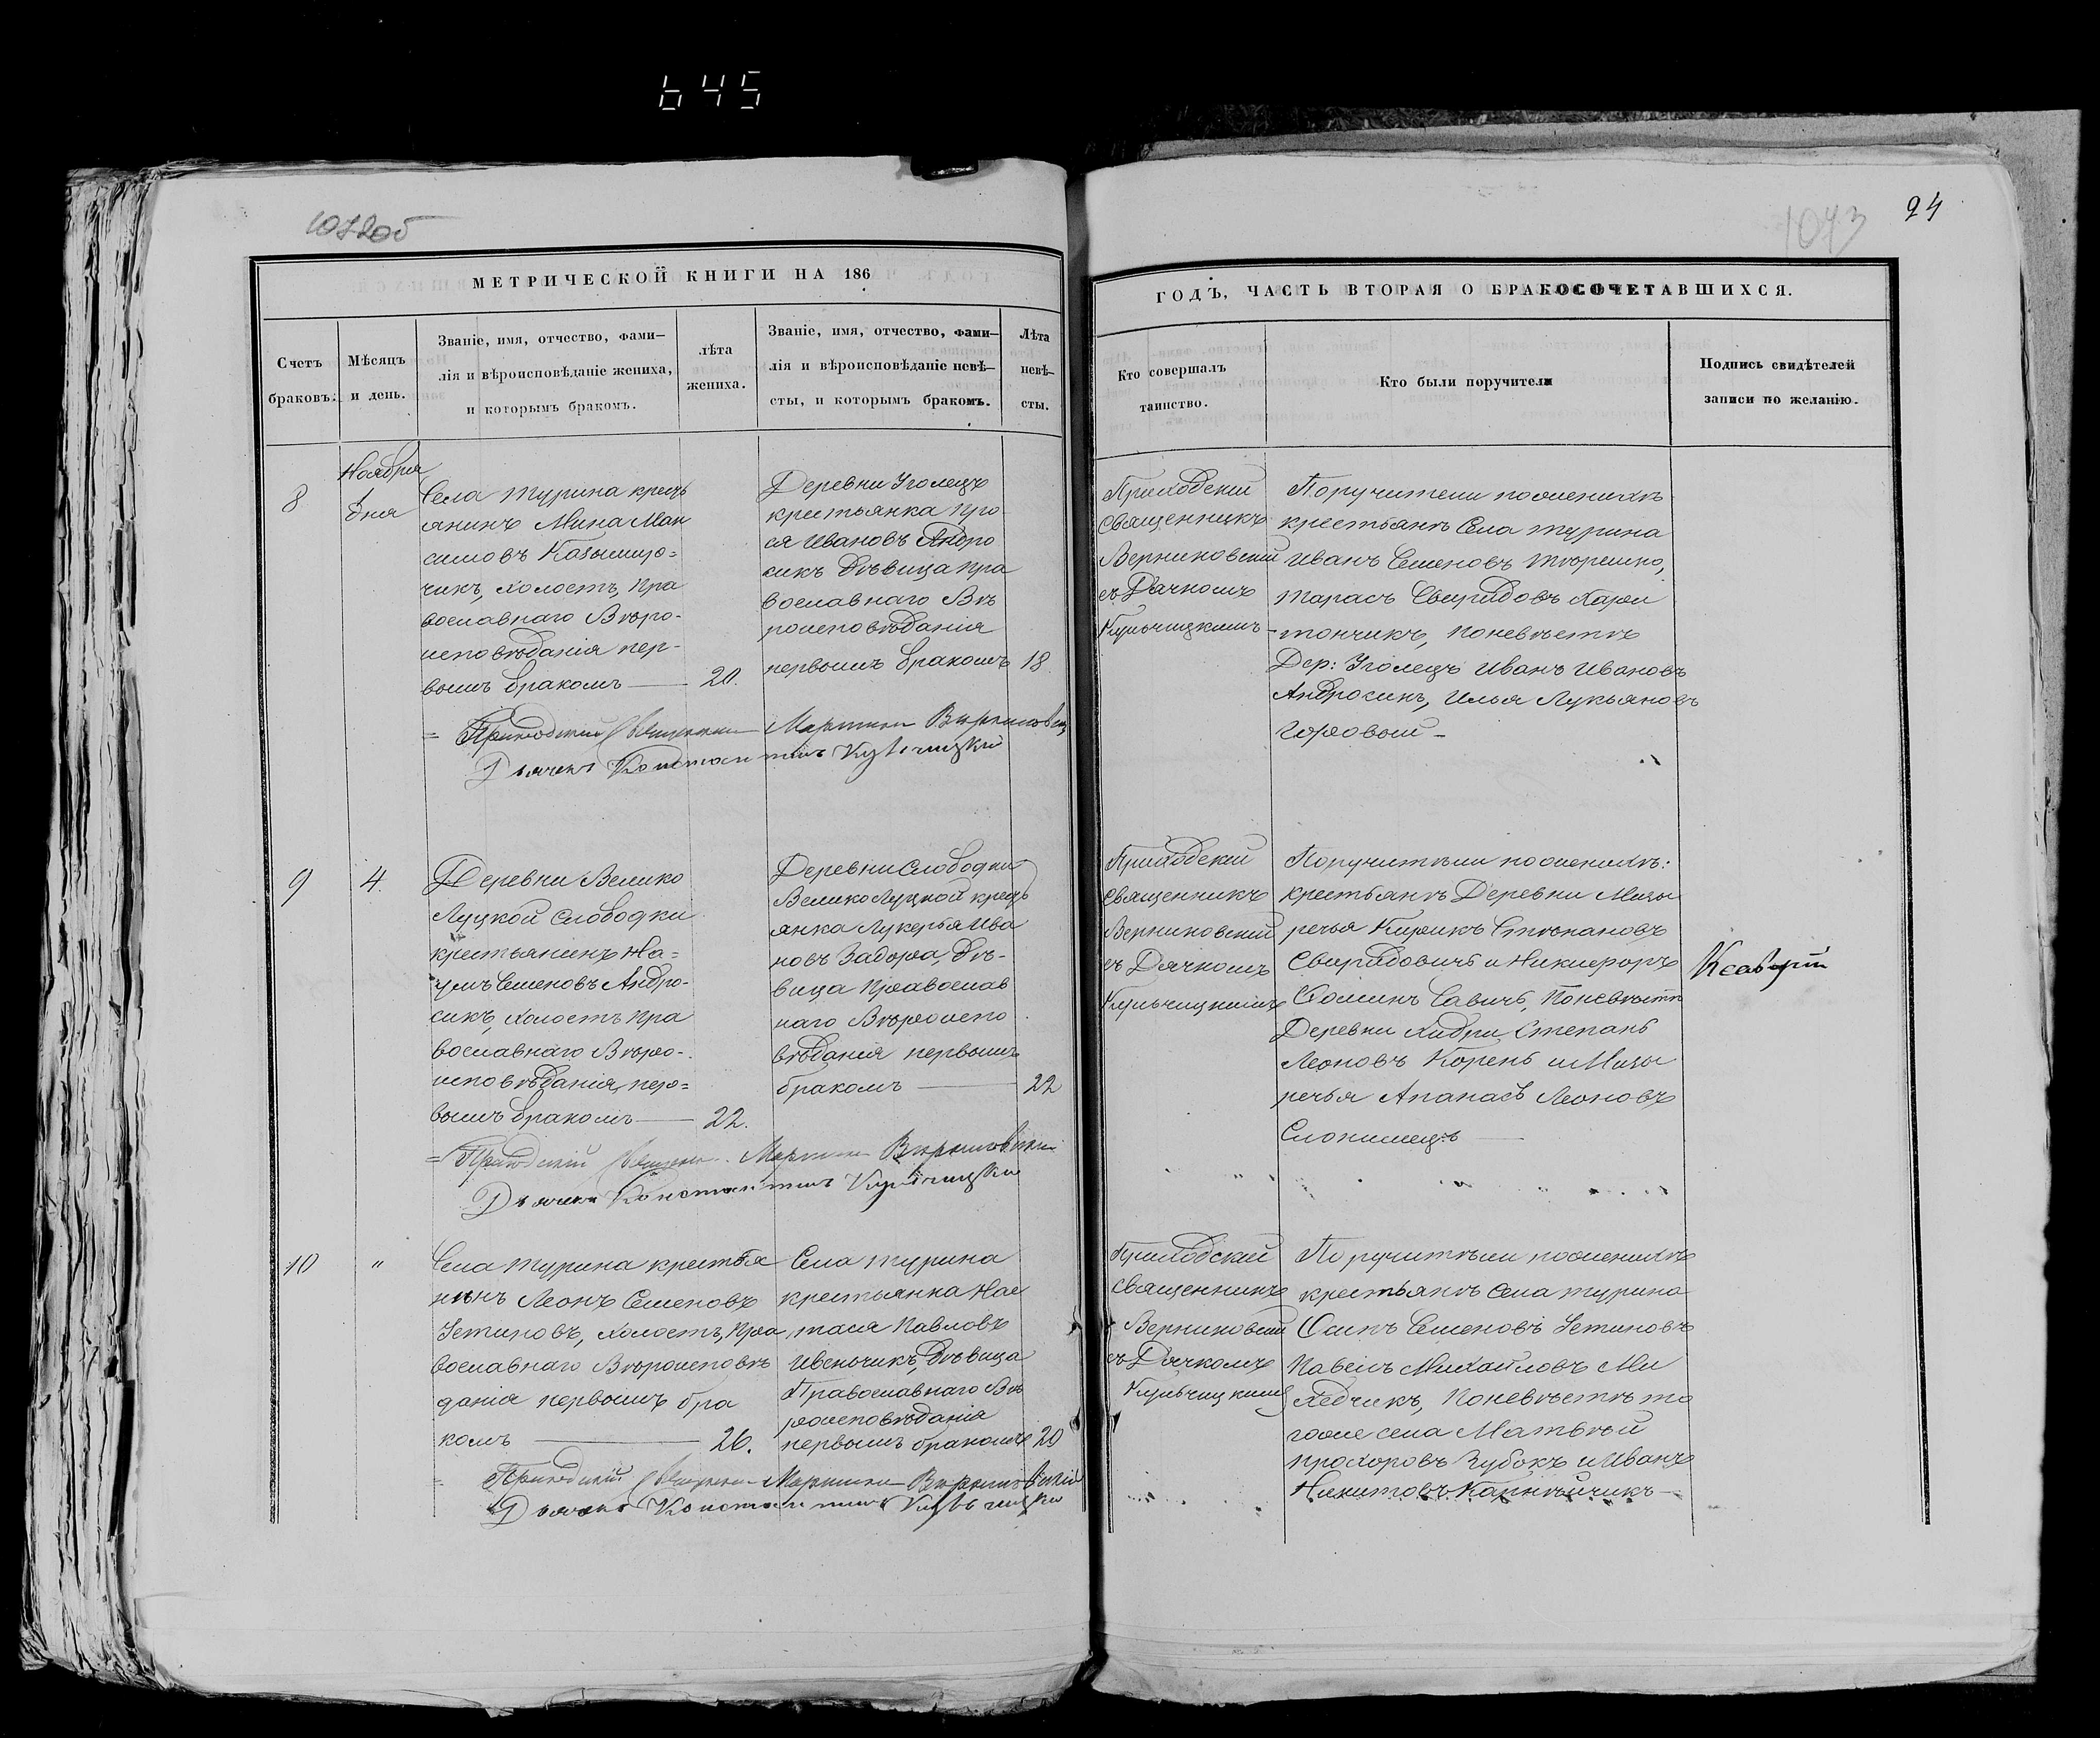 645
1072об
1073
24
МЕТРИЧЕСКОЙ КНИГИ НА 186
ГОДЪ, ЧАСТЬ ВТОРАЯ О БРАКОСОЧЕТАВШИХСЯ.
Счетъ
браковъ.
Мѣсяцъ
и день.
Званіе, имя, отчество, фами–
лія и вѣроисповѣданіе жениха,
и которымъ бракомъ.
лѣта
жениха.
Званіе, имя, отчество, фами–
лія и вѣроисповѣданіе невѣ–
сты, и которымъ бракомъ.
Лѣта
невѣ–
сты.
Кто совершалъ
таинство.
Кто были поручители
Подпись свидѣтелей
записи по желанію.
8
Ноября
дня
Села Турина кресть
янинъ Мина Мак
симовъ
чикъ, холостъ, Пра
вославнаго Вѣро-
исповѣданія пер-
вымъ бракомъ — 20.
Деревни Уголецъ
крестьянка Про
ся Ивановъ Андро
сикъ дѣвица Пра
вославнаго Вѣ
роисповѣданія
первымъ бракомъ 18
Приходскій
Священникъ
Верниковскій
съ Дячкомъ
Кульчицкимъ
Поручители по женихѣ
крестьянѣ Села Турина
Иванъ Семеновъ
Тарасъ Свиридовъ Хари
тончикъ, По невѣстѣ
Дер: Уголецъ Иванъ Ивановъ
Андросикъ, Илья Лукьяновъ
= Приходскій Священникъ Мартинъ Верниковскій
Дьячекъ Константинъ Кульчицкій
9
4.
Деревни Велико
Луцкой Слободки
крестьянинъ На=
умъ Семеновъ Андро-
сикъ, холостъ Пра
вославнаго Вѣро-
исповѣданія, пер=
вымъ бракомъ — 22.
Деревни Слободки
Велико Луцкой кресть
янка Лукерья Ива
новъ Задора, дѣ-
вица Православ
наго Вѣроиспо
вѣданія первымъ
бракомъ — 22
Приходскій
Священникъ
Верниковскій
съ Дячкомъ
Кульчицкимъ
Поручители по женихѣ:
крестьянѣ Деревни Мизы
речья Кирикъ Стѣпановъ
Свиридовичъ и Никифоръ
Фоминъ Савичъ, По невѣстѣ
Деревни Хидри Степанъ
Леоновъ Корень и Мизы
речья Апанасъ Леоновъ
Слонимецъ —
= Приходскій Священникъ Мартинъ Верниковскій
Дьячекъ Константинъ Кульчицкій
10
"
Села Турина крестья
нинъ Леонъ Семеновъ
Устиновъ, холостъ, Пра
вославнаго Вѣроисповѣ
данія первымъ бра
комъ — 26.
Села Турина
крестьянка Нас
тася Павловъ
Ивенчикъ, дѣвица
Православнаго Вѣ
роисповѣданія
первымъ бракомъ 20
Приходскій
Священникъ
Верниковскій
съ Дячкомъ
Кульчицкимъ
Поручители по женихѣ
крестьянѣ Села Турина
Осипъ Семеновъ Устиновъ
Павелъ Михайловъ Ми
хедчикъ, По невѣстѣ то
гоже села Матвѣй
Прохоровъ Зубокъ и Иванъ
Никитовъ Карнѣйчикъ —
= Приходскій Священникъ Мартинъ Верниковскій
Дьячекъ Константинъ Кульчицкій